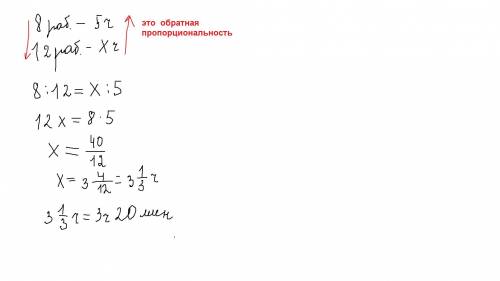 8 раб. – 5ч
12 раб. – Xч
это обратная
пропорциональность
8 : 12 = X : 5
12 x = 8 · 5
X = 40/12
X = 3 4/12 = 3 1/3 ч
3 1/3 ч = 3ч 20 мин